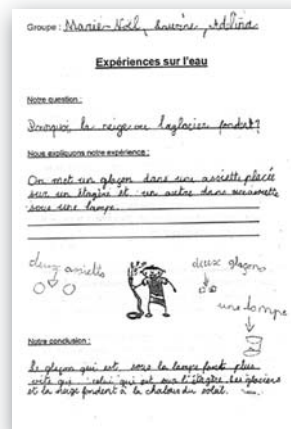 Groupe : Marie-Noël, Laurine, Adlina
Expériences sur l'eau
Notre question :
Pourquoi la neige ou la glacier fondent ?
Nous expliquons notre expérience :
On met un glaçon dans une assiette placée
sur un étagère et un autre dans une assiette
sous une lampe.
deux assiette
deux glaçons
une lampe
Notre conclusion :
Le glaçon qui est sous la lampe font plus
vite que celui qui est sur l'étagère. Les glaciers
et la neige fondent à la chaleur du soleil.